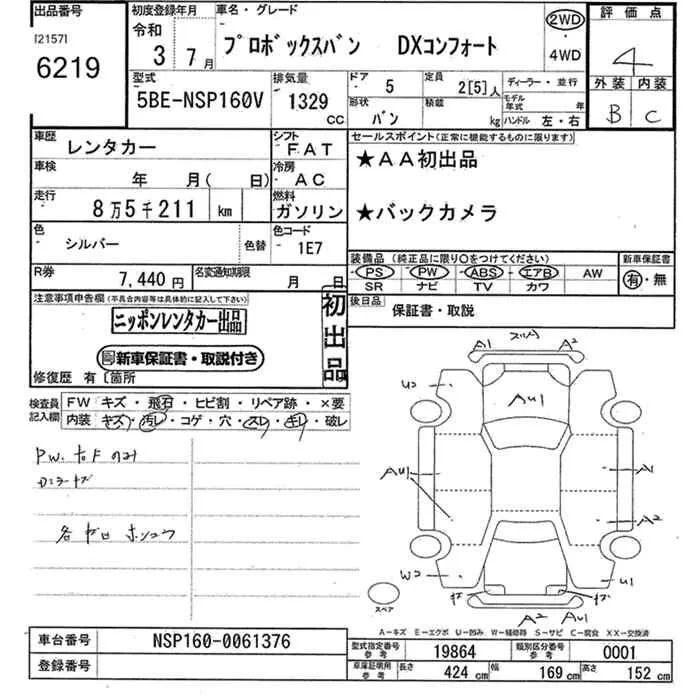 出品番号
[2157]
6219
初度登録年月
令和
3 7月
車名・グレード
プロボックスバン DXコンフォート
2WD
・
4WD
評価点
4
外装 内装
B C
型式
5BE-NSP160V
排気量
1329 CC
ドア
5
形状
バン
定員
2[5]人
積載
kg
ディーラー・並行
モデル年式 年
ハンドル 左・右
車歴
レンタカー
シフト
FAT
車検
年 月( 日)
冷房
AC
走行
8万5千211 km
燃料
ガソリン
色
シルバー
色替
色コード
1E7
R券
7,440円
名変通知期限
月 日
セールスポイント(正常に機能するものに限ります)
★AA初出品
★バックカメラ
装備品(純正品に限り○をつけてください)
PS・PW・ABS・エアB AW
SR ナビ TV カワ
新車保証書
有・無
後日品
保証書・取説
注意事項申告欄(不具合内容等は具体的に記入して下さい)
ニッポンレンタカー出品
新車保証書・取説付き
初出品
修復歴 有〔箇所
検査員記入欄
FW キズ・飛石・ヒビ割・リペア跡・×要
内装 キズ・汚レ・コゲ・穴・スレ・キレ・破レ
PW.右Fのみ
A1
A2
U2
AU1
AU1
A1
A2
W2
U1
A2 AU1
スペア
A-キズ E-エクボ U-凹み W-補修跡 S-サビ C-腐食 XX-交換済
車台番号
NSP160-0061376
登録番号
型式指定番号
参考
19864
類別区分番号
参考
0001
車庫証明用
参考
長さ
424 cm
幅
169 cm
高さ
152 cm